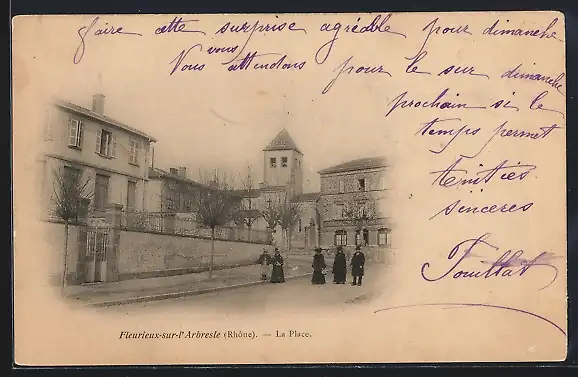 faire cette surprise agréable pour dimanche
vous
Vous attendons pour le sur dimanche
prochain si le
temps permet
sinceres
Fleurieux-sur-l'Arbresle (Rhône). — La Place.